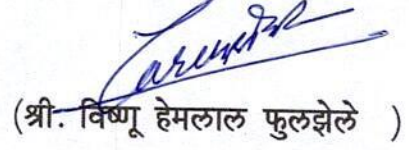 (श्री. विष्णू हेमलाल फुलझेले )